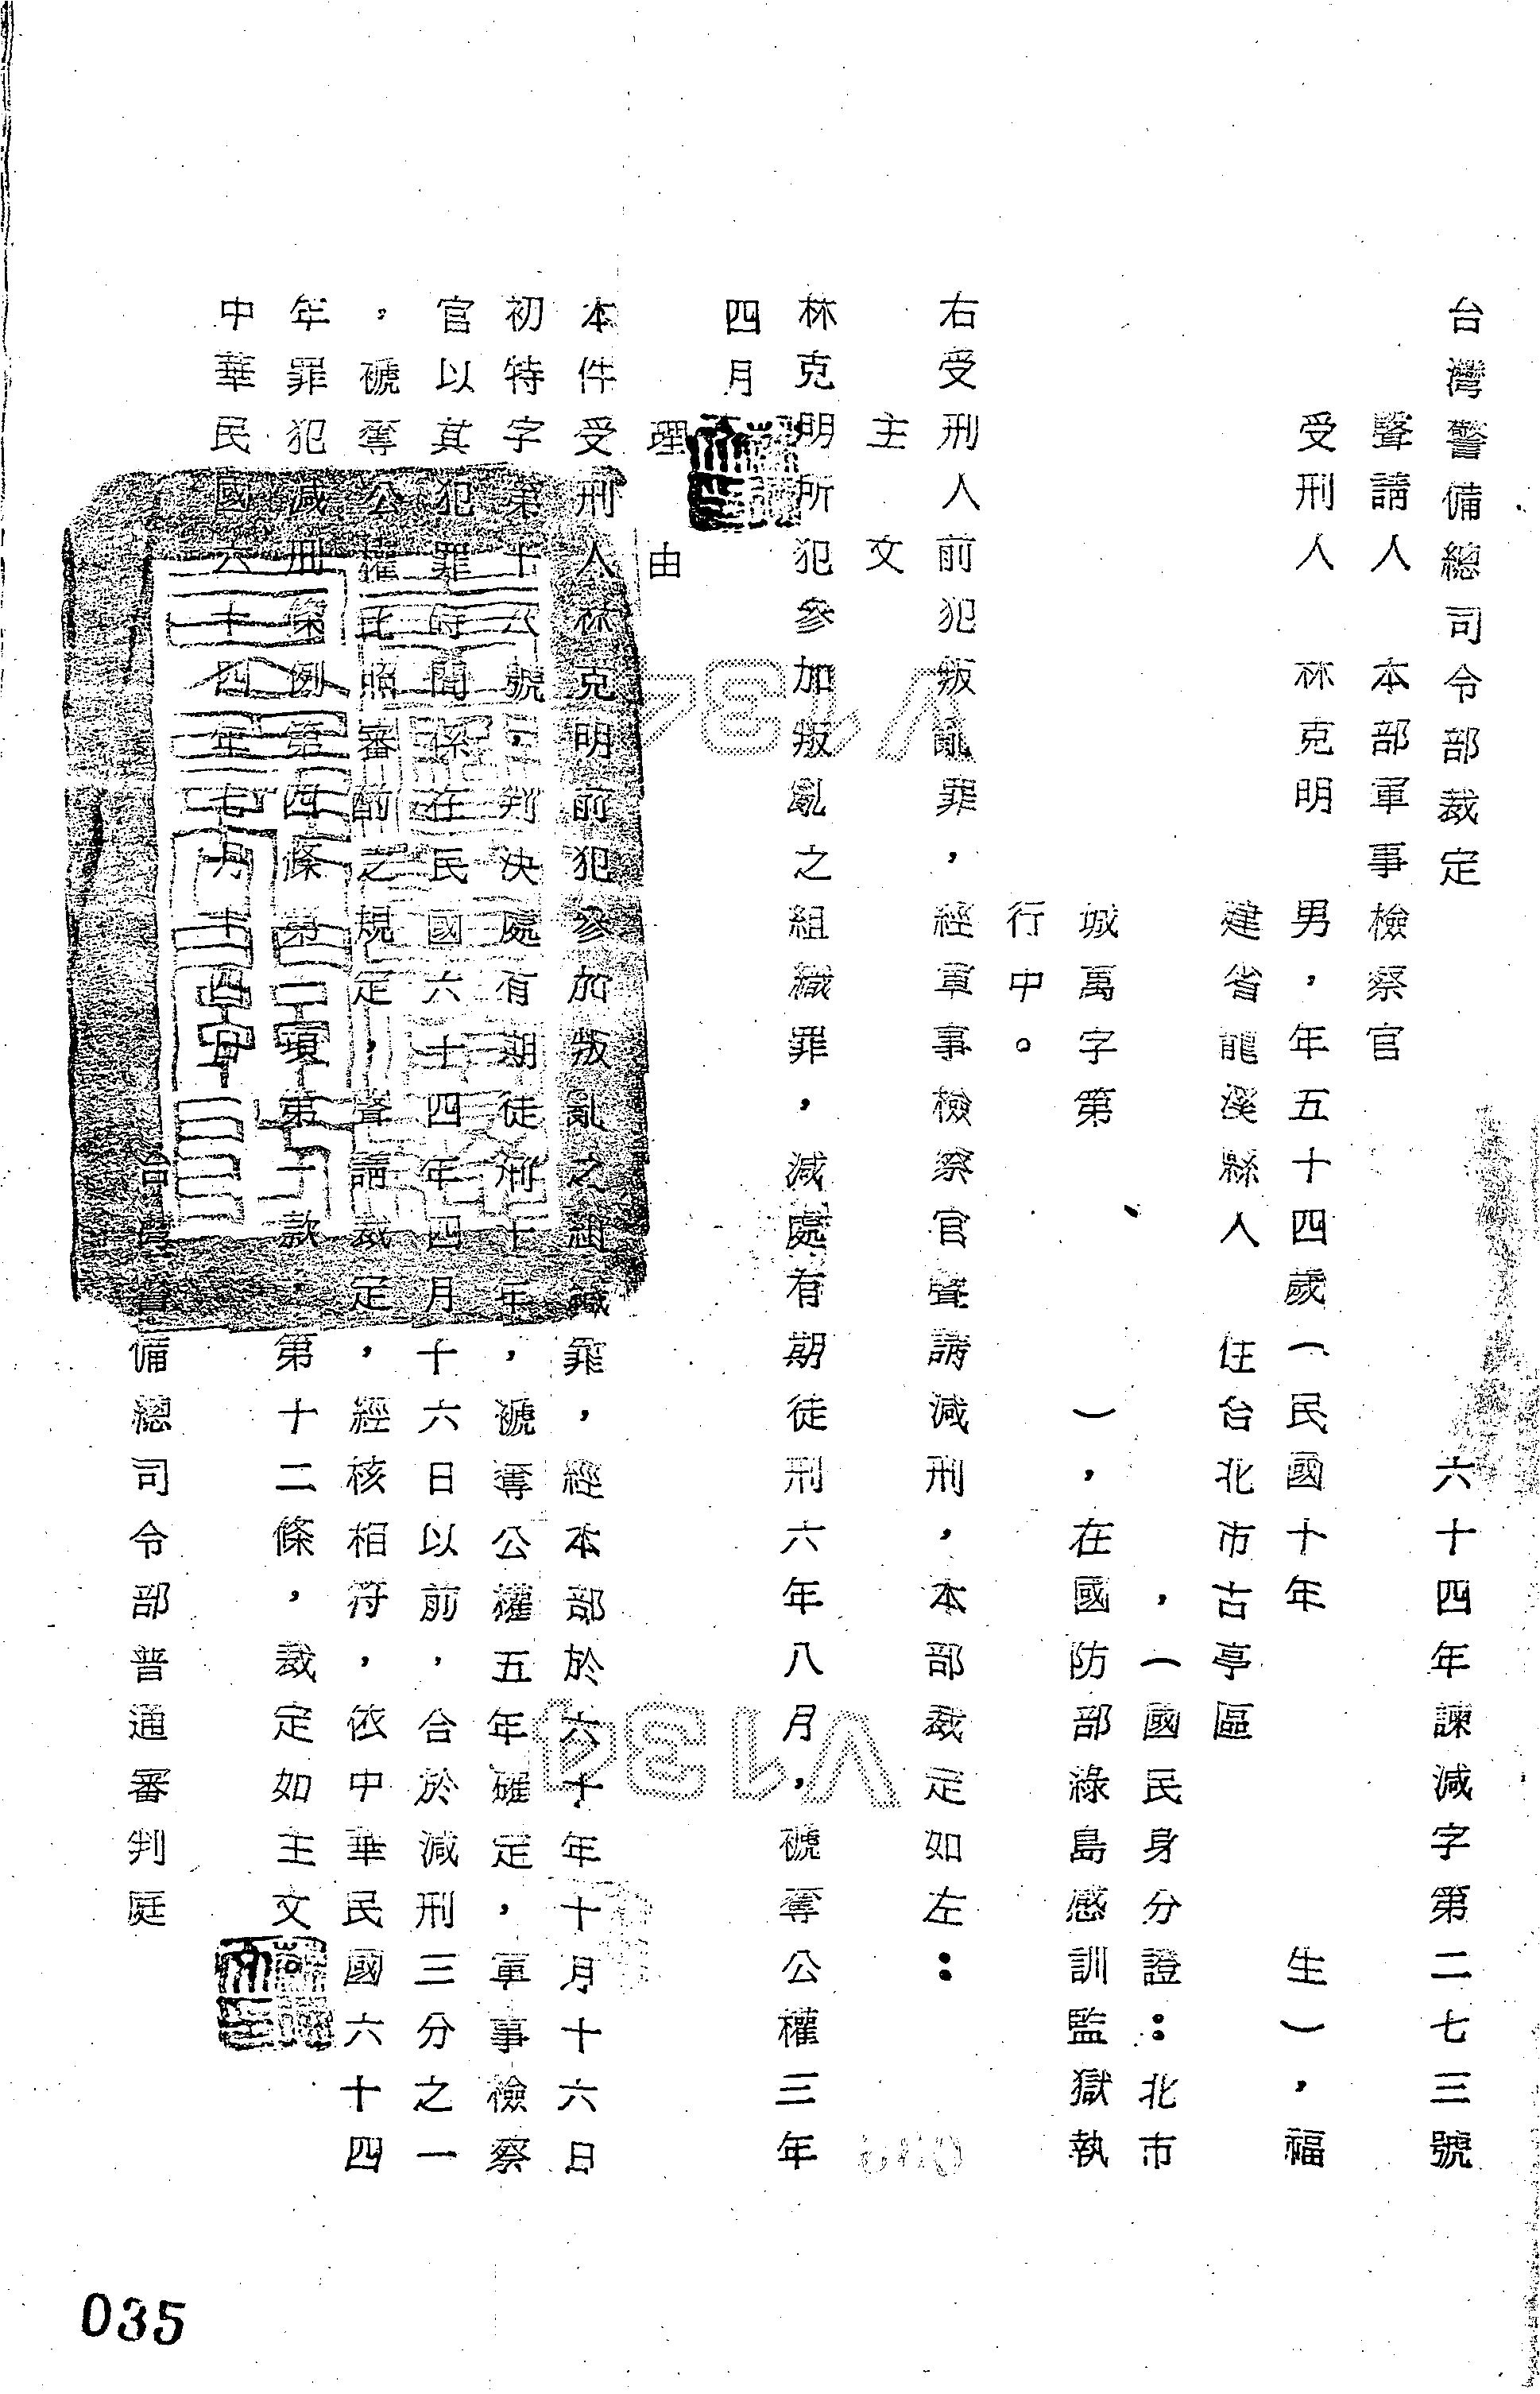 台灣警備總司令部裁定
六十四年諫減字第二七三號
聲請人 本部軍事檢察官
受刑人 林克明 男，年五十四歲（民國十年 生），福
建省龍溪縣人 住台北市古亭區
，（國民身分證：北市
城萬字第 ），在國防部綠島感訓監獄執
行中。
右受刑人前犯叛亂罪，經軍事檢察官聲請減刑，本部裁定如左：
主文
林克明所犯參加叛亂之組織罪，減處有期徒刑六年八月，褫奪公權三年
四月
理由
本件受刑人林克明前犯參加叛亂之組織罪，經本部於六十年十月十六日
初特字第十八號，判決處有期徒刑十年，褫奪公權五年確定，軍事檢察
官以其犯罪時間係在民國六十四年四月十六日以前，合於減刑三分之一
，褫奪公權比照審酌之規定，聲請裁定，經核相符，依中華民國六十四
年罪犯減刑條例第四條第一項第一款，第十二條，裁定如主文
中華民國六十四年七月十四日
台灣警備總司令部普通審判庭
V134
V134
035